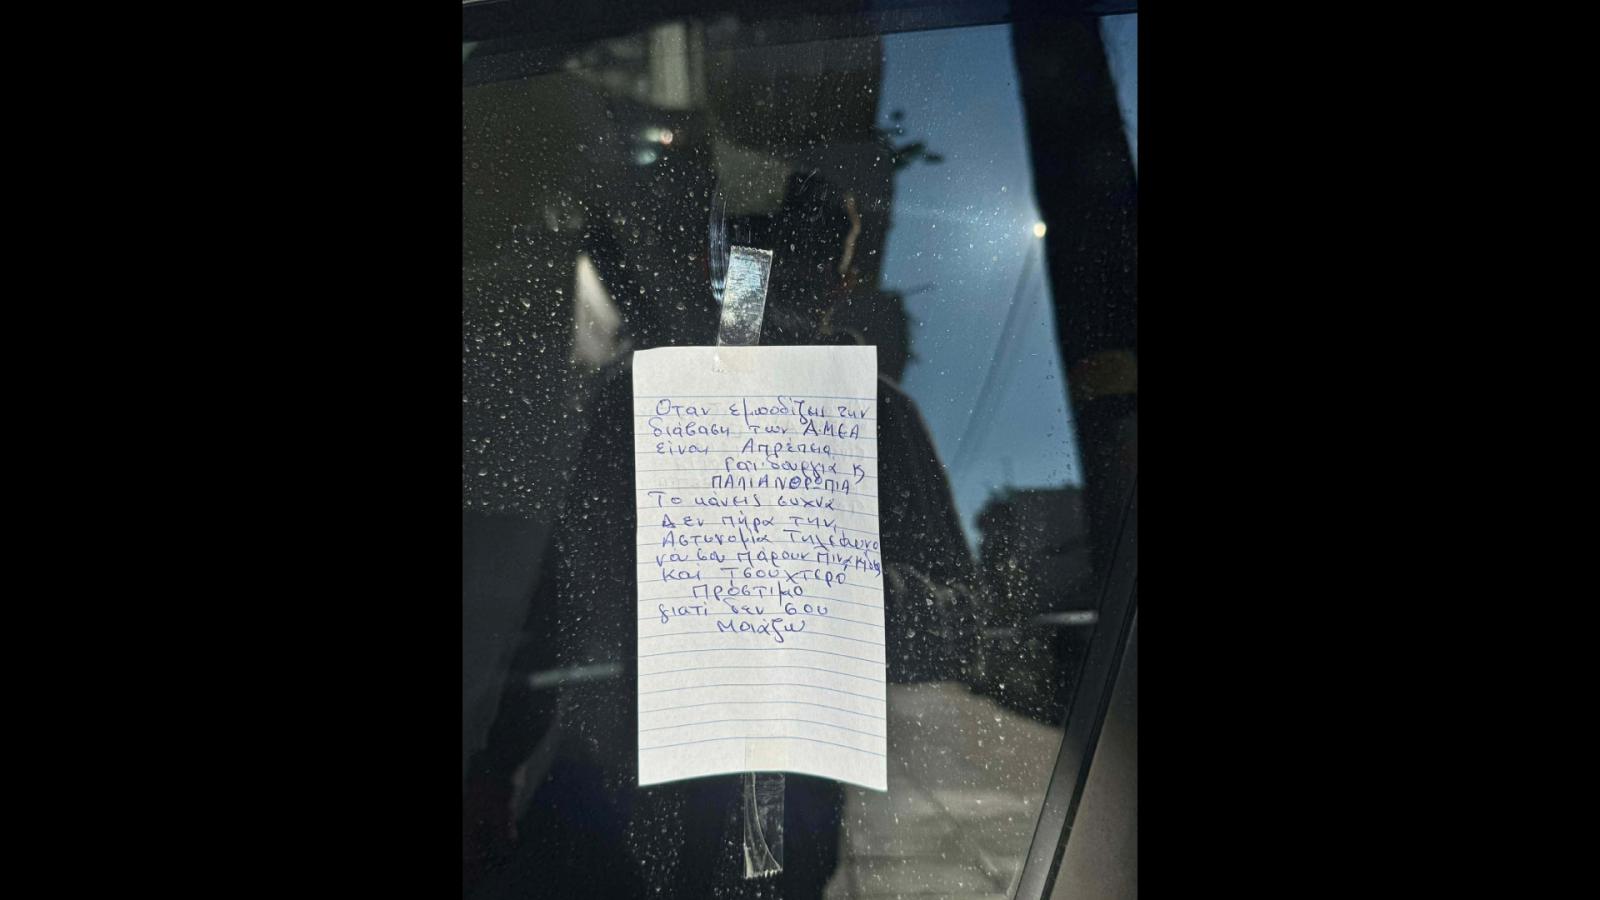 Οταν εμποδίζεις την
διάβαση των Α.ΜΕΑ
είναι Απρέπεια
Γαϊδουργιά Κ
ΠΑΛΙΑΝΘΡΩΠΙΑ
Το κάνεις συχνά
Δεν πήρα την
Αστυνομία Τηλέφωνο
να σου πάρουν Πινακίδες
και Τσουχτερό
Πρόστιμο
γιατί δεν σου
Μοιάζω